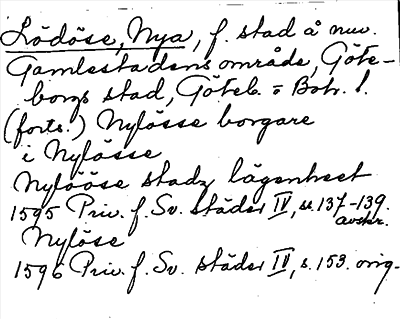 Lödöse, Nya, f. stad å nuv.
Gamlestadens område, Göte-
borgs stad, Göteb. o Boh. l.
(forts.) Nylösse borgare
i Nylösse
Nylööse stadz lägenheet
1595 Priv. f. Sv. städer IV, s. 137-139.
avskr.
Nylöse
1596 Priv. f. Sv. städer IV, s. 153. orig.